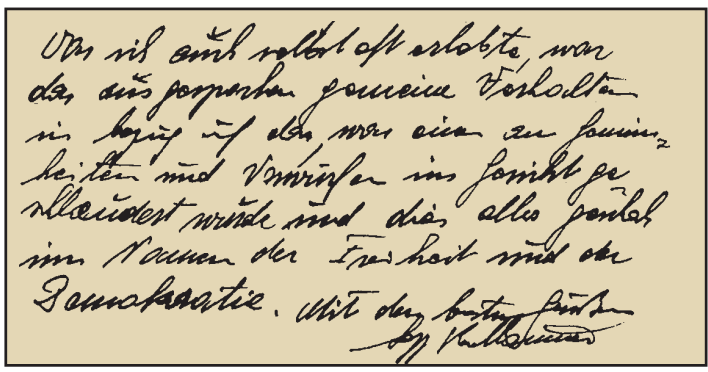 Was ich auch selbst oft erlebte, war
das ausgesprochen gemeine Verhalten
in bezug auf das, was einem an Gemein=
heiten und Vorwürfen ins Gesicht ge
schleudert wurde und dies alles geschah
im Namen der Freiheit und der
Demokratie. Mit den besten Grüßen